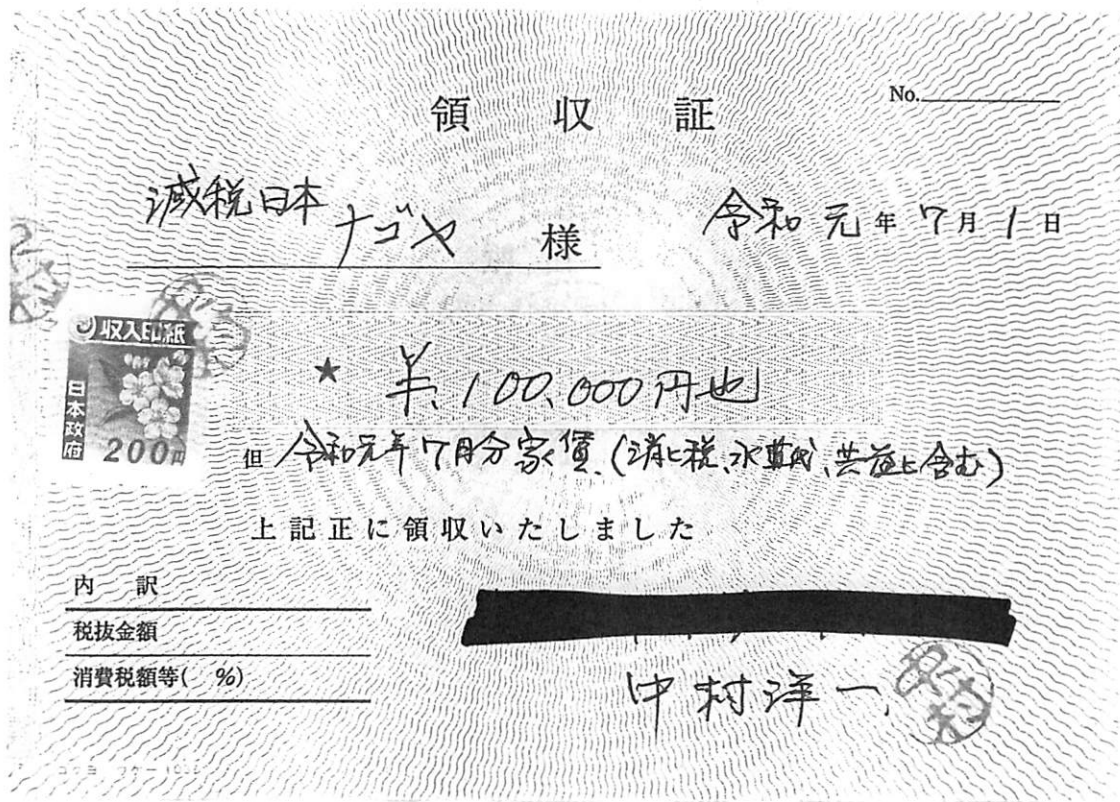 領収証
No.
減税日本
ナゴヤ 様
令和元年7月1日
収入印紙
日本政府
200円
★ ¥.100,000円也
但 令和元年7月分家賃(消ヒ税、水道代、共益ヒ含む)
上記正に領収いたしました
内訳
税抜金額
消費税額等( %)
中村洋一